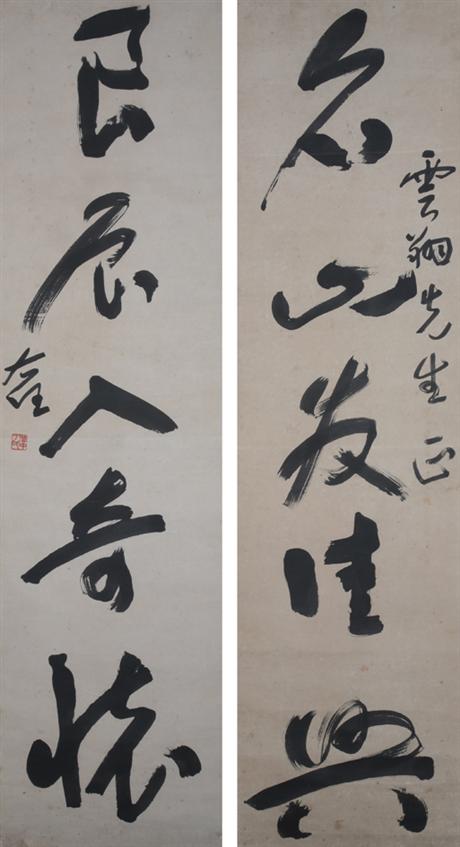 名山發佳興
雲翔先生正
良辰入奇懷